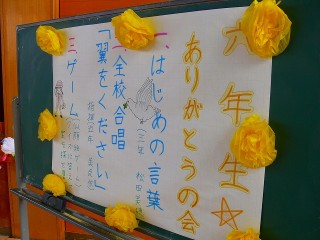 六年生☆
ありがとうの会
一、はじめの言葉
(三年 松田
二、全校合唱
「翼をください」
指揮(五年
三、ゲーム